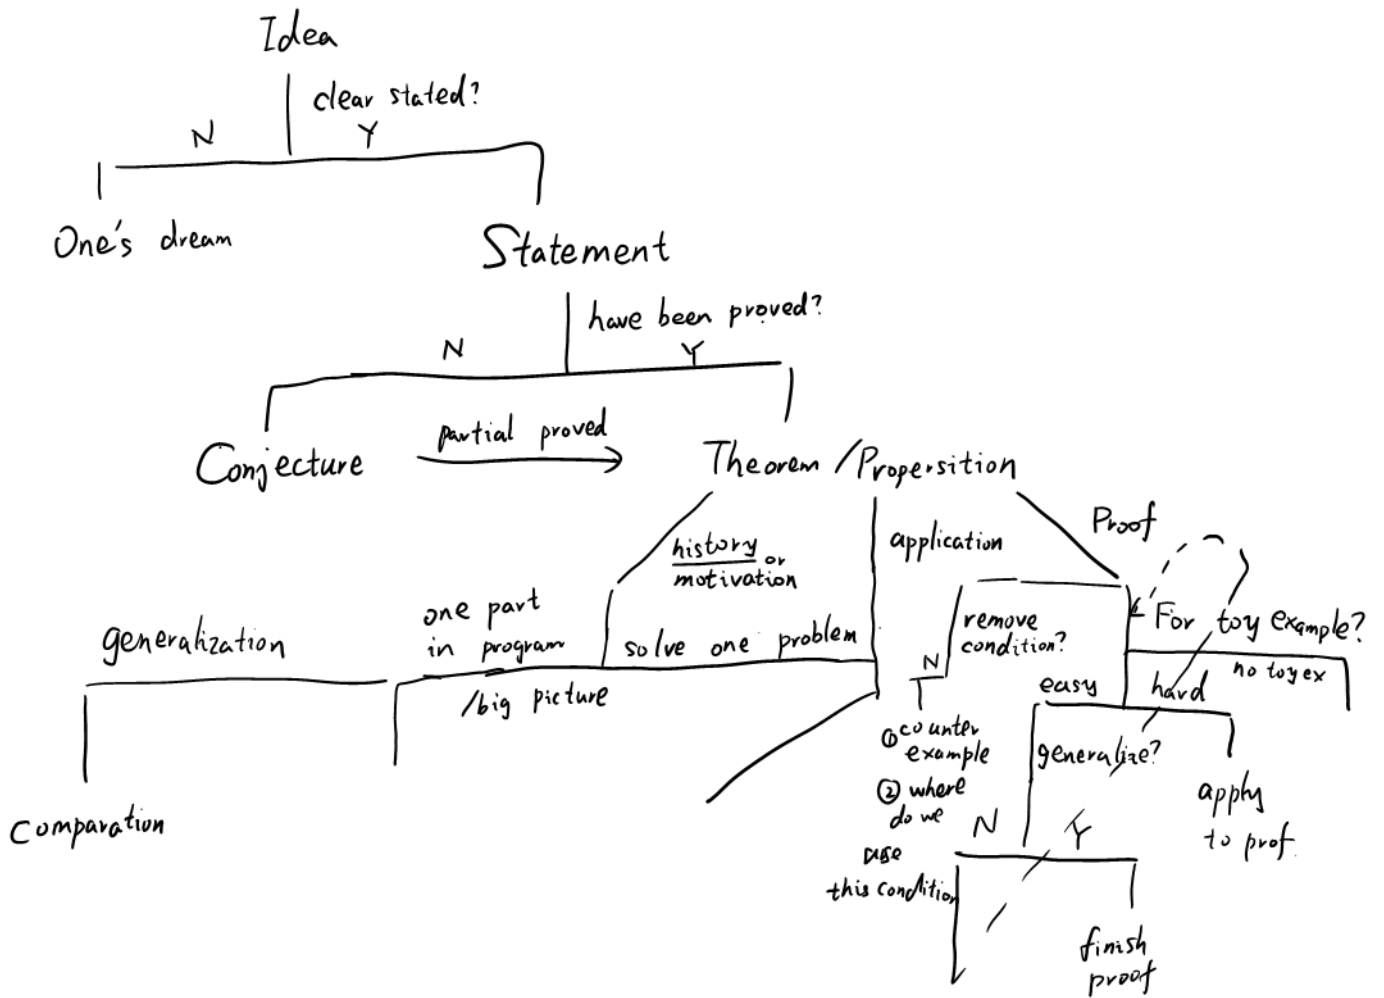 Idea
clear stated?
N
Y
One's dream
Statement
have been proved?
N
Y
Conjecture
partial proved
Theorem / Propersition
history or
motivation
application
Proof
generalization
one part
in program
/big picture
solve one problem
remove
condition?
N
① counter
example
② where
do we
use
this condition
For toy example?
no toy ex
easy
hard
generalize?
apply
to prof.
N
Y
finish
proof
Comparation